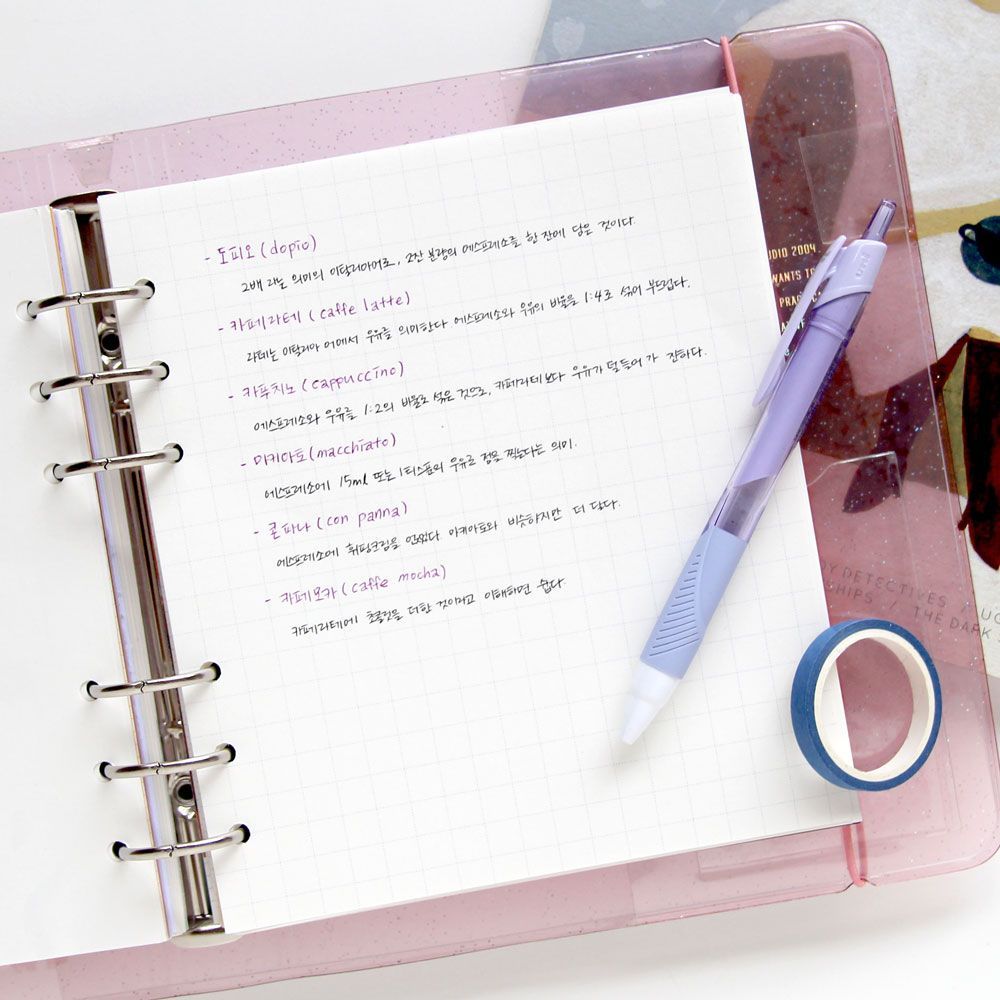 - 도피오 (dopio)
2배 라는 의미의 이탈리아어로, 2잔 분량의 에스프레소를 한 잔에 담은 것이다.
- 카페라테 (caffe latte)
라떼는 이탈리아 어에서 우유를 의미한다 에스프레소와 우유의 비율을 1:4로 섞어 부드럽다.
- 카푸치노 (cappuccino)
에스프레소와 우유를 1:2의 비율로 섞은 것으로, 카페라테 보다 우유가 덜 들어가 진하다.
- 마키아토 (macchiato)
에스프레소에 15ml 또는 1티스푼의 우유로 점을 찍는다는 의미.
- 콘파나 (con panna)
에스프레소에 휘핑크림을 얹었다. 마키아토와 비슷하지만 더 달다.
- 카페모카 (caffe mocha)
카페라테에 초콜릿을 더한 것이라고 이해하면 쉽다.
UDIO 2004
WANTS TO
uni
Y DETECTIVES / UG
SHIPS / THE DARK